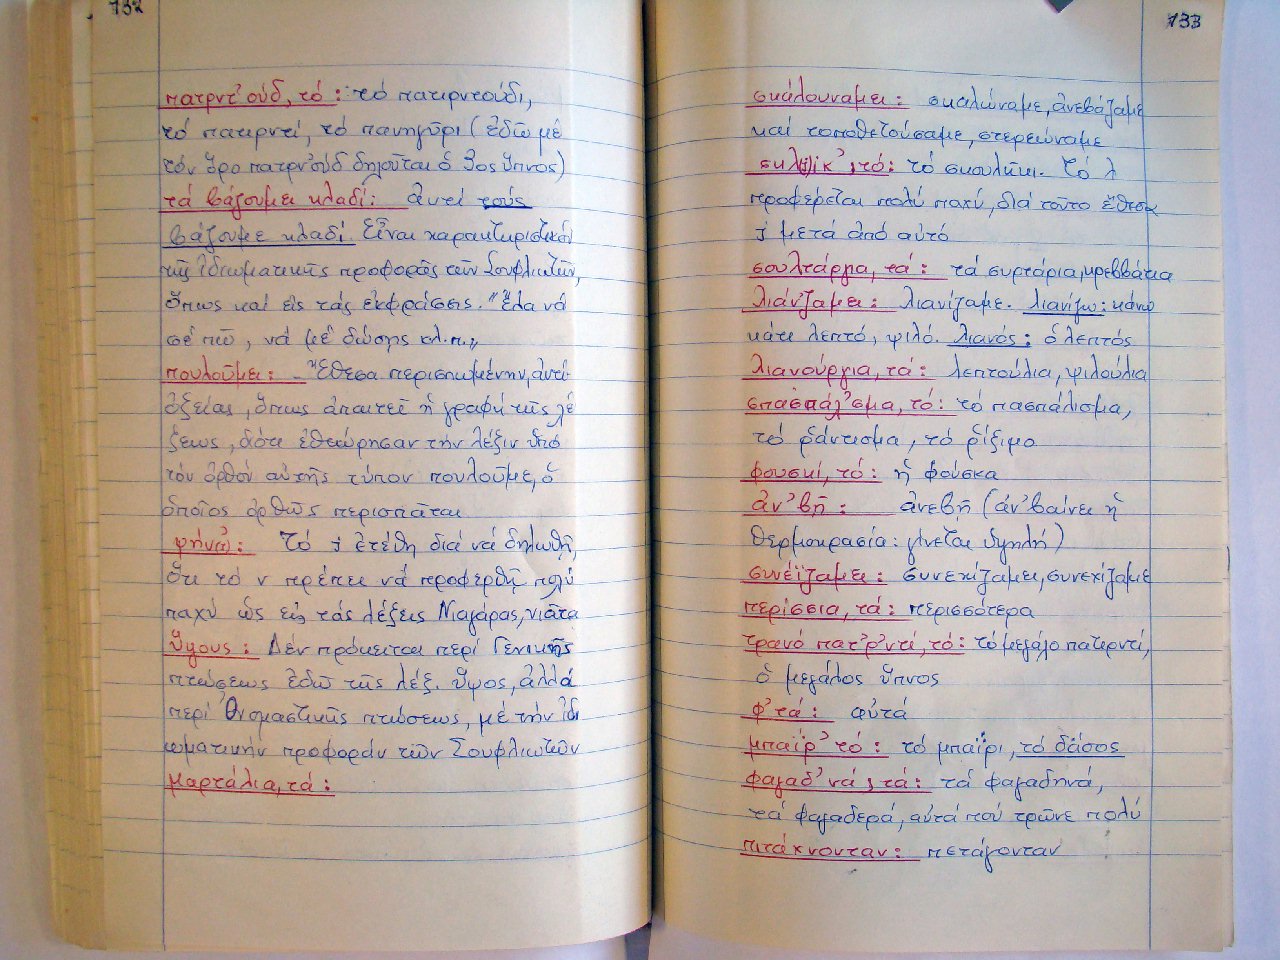 732
πατρντ᾿ούδ, τό: τό πατιρντούδι,
τό πατιρντί, τό πανηγύρι (ἐδῶ μέ
τόν ὅρο πατρντ᾿ούδ δηλοῦται ὁ 3ος ὕπνος)
τά βάζουμει κλαδί: ἀντί τούς
βάζουμε κλαδί. Εἶναι χαρακτηριστικόν
τῆς ἰδιωματικῆς προφορᾶς τῶν Σουφλιωτῶν,
ὅπως καί εἰς τάς ἐκφράσεις. "Ἔλα νά
σέ πῶ, νά μέ δώσης κλ.π.,,
πουλοῦμει: - Ἔθεσα περισπωμένην, ἀντί
ὀξείας, ὅπως ἀπαιτεῖ ἡ γραφή τῆς λέ
ξεως, διότι ἐθεώρησαν τήν λέξιν ὑπό
τόν ὀρθόν αὐτῆς τύπον πουλοῦμε, ὁ
ὁποῖος ὀρθῶς περισπᾶται
Τό j ἐτέθη διά νά δηλωθῇ,
ὅτι τό ν πρέπει νά προφερθῇ πολύ
παχύ ὡς εἰς τάς λέξεις Νιαγάρας, νιᾶτα
Ὕψους: Δέν πρόκειται περί Γενικῆς
πτώσεως ἐδῶ τῆς λέξ. ὕψος, ἀλλά
περί Ὀνομαστικῆς πτώσεως, μέ τήν ἰδι
ωματικήν προφοράν τῶν Σουφλιωτῶν
μαρτάλια, τά:
733
σκάλουναμει: σκαλώναμε, ἀνεβάζαμε
καί τοποθετούσαμε, στερεώναμε
σκλ(j)ίκ᾿, τό: τό σκουλήκι. Τό λ
προφέρεται πολύ παχύ, διά τοῦτο ἔθεσα
j μετά ἀπό αὐτό
σουλτάργια, τά: τά συρτάρια, κρεββάτια
λιάνζαμει: λιανίζαμε. λιανίζω: κάνω
κάτι λεπτό, ψιλό. λιανός: ὁ λεπτός
λιανούργια, τά: λεπτούλια, ψιλούλια
σπασπάλ᾿σμα, τό: τό πασπάλισμα,
τό ράντισμα, τό ρίξιμο
φουσκί, τό: ἡ φούσκα
ἀν᾿βῆ: ἀνεβῆ (ἀν᾿βαίνει ἡ
θερμοκρασία: γίνεται ὑψηλή)
συνέϊζαμει: συνεχίζαμει, συνεχίζαμε
περίσσια, τά: περισσότερα
τρανό πατ᾿ρ᾿ντί, τό: τό μεγάλο πατιρντί,
ὁ μεγάλος ὕπνος
φ᾿τά: φυτά
μπαΐρ᾿ τό: τό μπαΐρι, τό δάσος
φαγαδ᾿νά, τά: τά φαγαδηνά,
τά φαγαδερά, αὐτά πού τρῶνε πολύ
πιτάχνουνταν: πετάγονταν